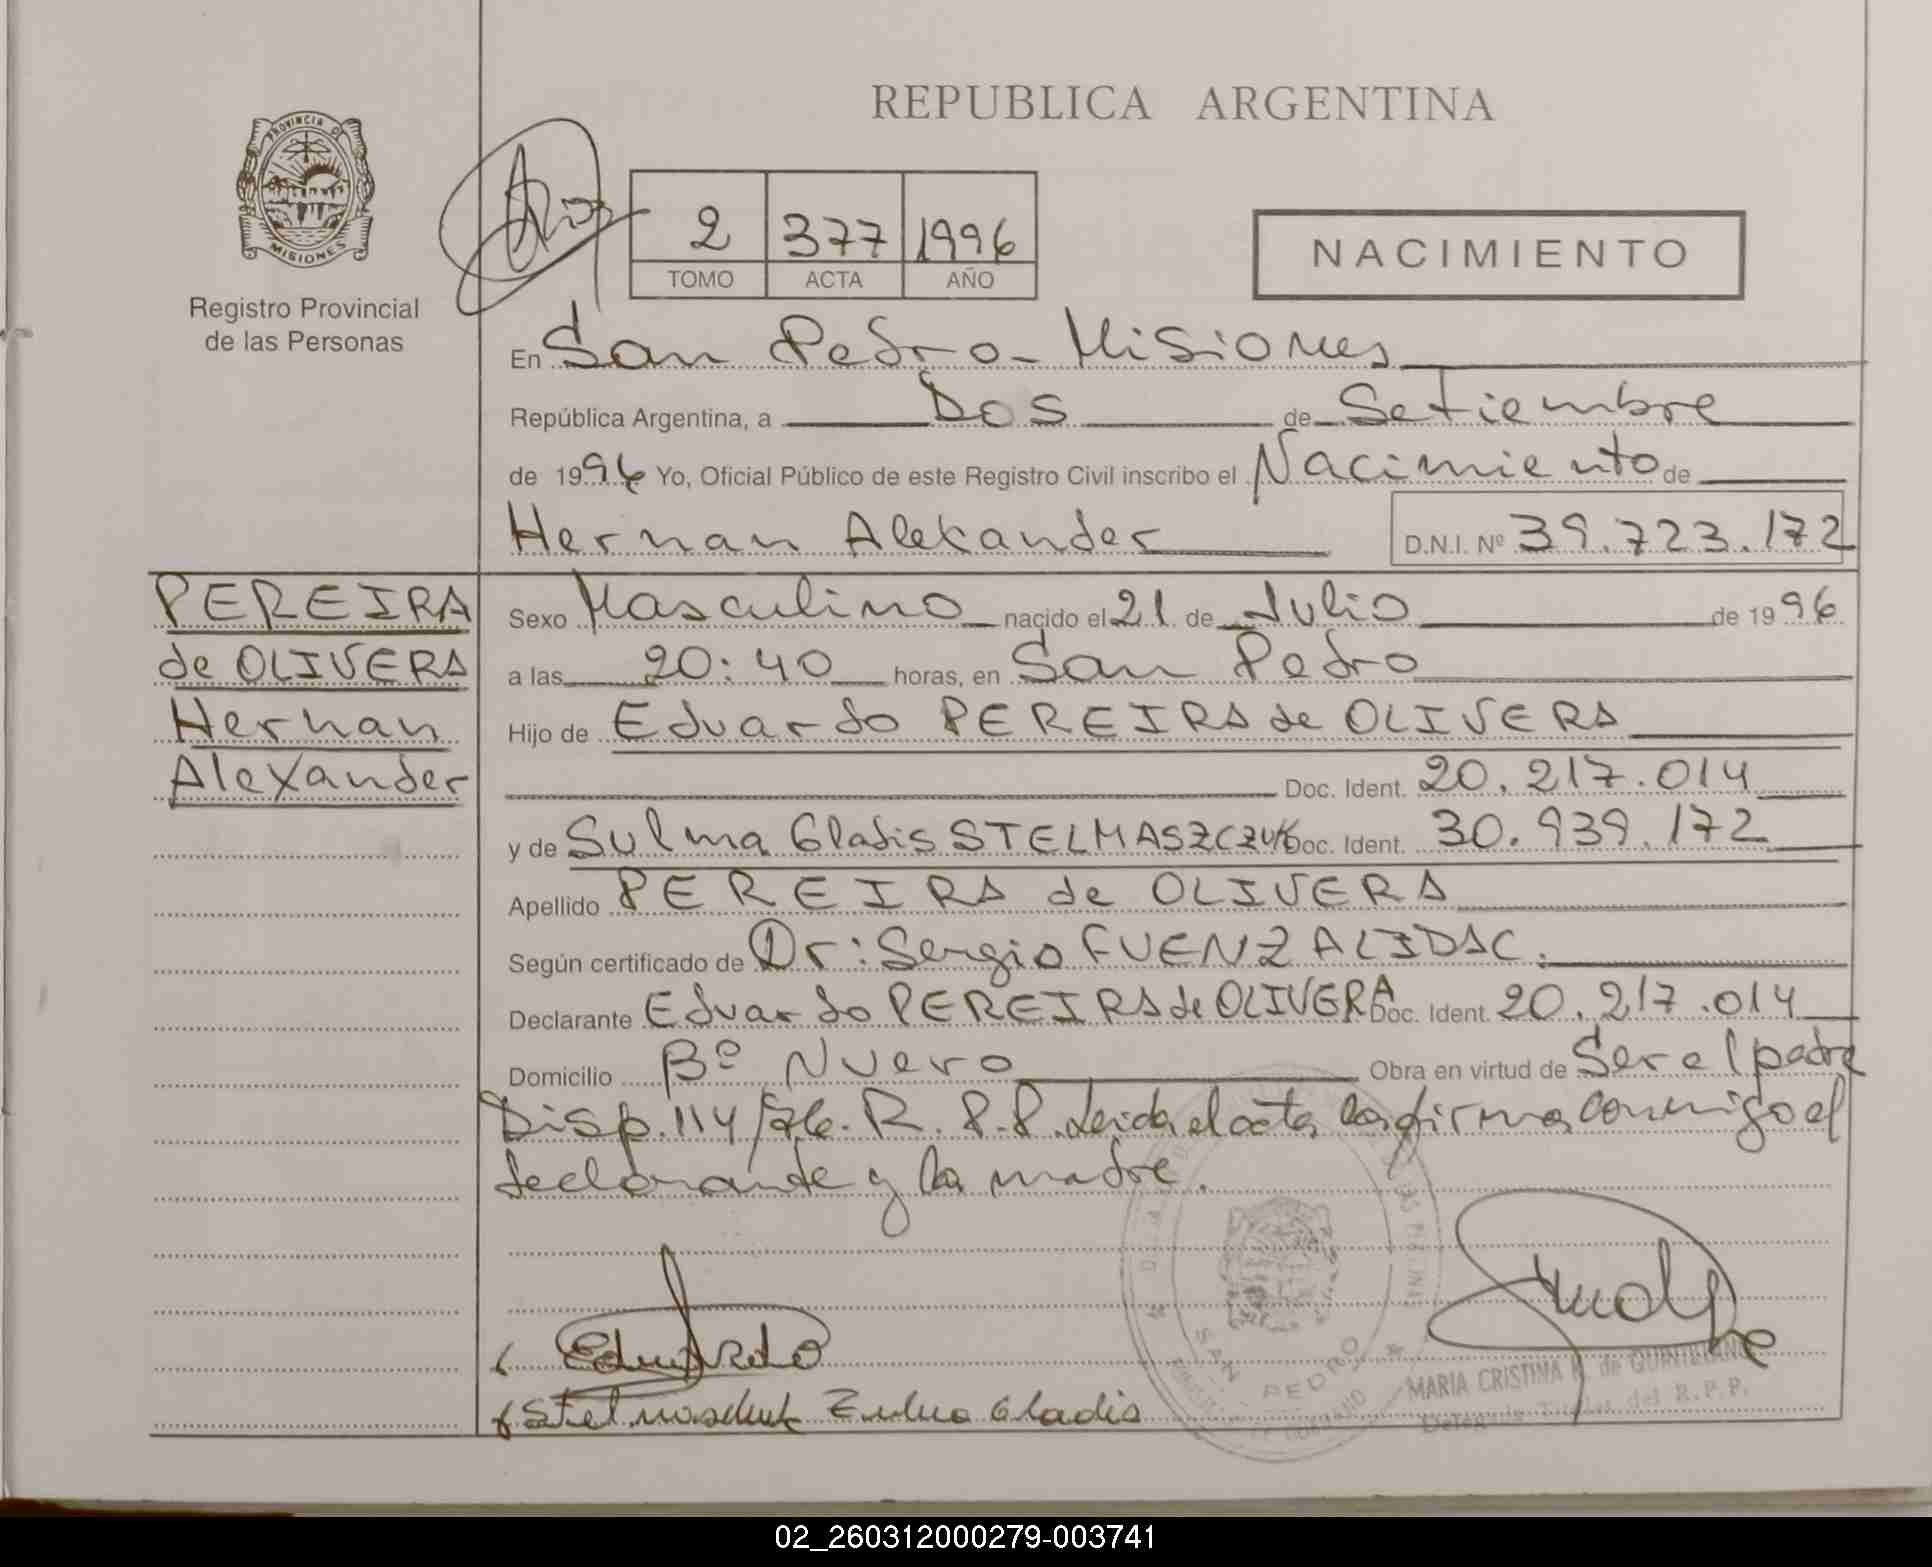 REPUBLICA ARGENTINA
PROVINCIA DE
MISIONES
Registro Provincial
de las Personas
2 377 1996
TOMO ACTA AÑO
NACIMIENTO
En San Pedro - Misiones
República Argentina, a Dos de Setiembre
de 1996 Yo, Oficial Público de este Registro Civil inscribo el Nacimiento de
Hernan Alexander D.N.I. Nº 39.723.172
PEREIRA
de OLIVERA
Hernan
Alexander
Sexo Masculino nacido el 21 de Julio de 1996
a las 20:40 horas, en San Pedro
Hijo de Eduardo PEREIRA de OLIVERA
Doc. Ident. 20.217.014
y de Sulma Gladis STELMASZCZUK Doc. Ident. 30.939.172
Apellido PEREIRA de OLIVERA
Según certificado de Dr: Sergio FUENZALIDA C.
Declarante Eduardo PEREIRA de OLIVERA Doc. Ident. 20.217.014
Domicilio Bº Nuevo Obra en virtud de Ser el padre
Disp. 114/ R.P.P. Leida el acta la firma conmigo el
declarante y la madre.
SAN PEDRO
MARIA CRISTINA de
Titular del R.P.P.
Gladis
02_260312000279-003741